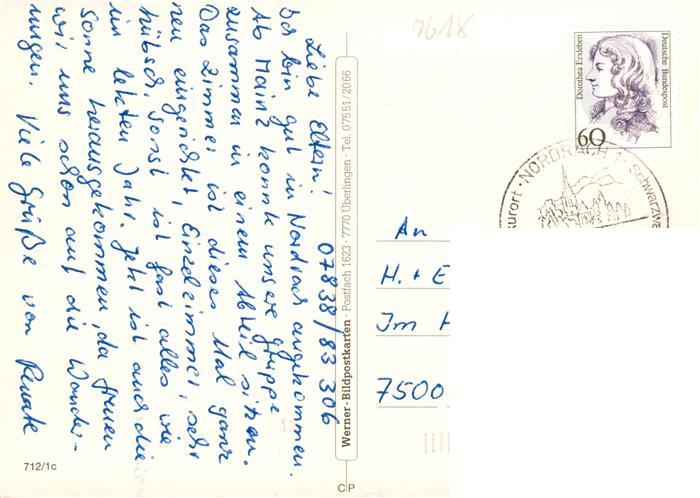 Liebe Eltern!
07838/83 306
Ich bin gut in Nordrach angekommen.
Ab Mainz konnte unsere Gruppe
zusammen in einem Abteil sitzen.
Das Zimmer ist dieses Mal ganz
neu eingerichtet, Einzelzimmer, sehr
hübsch. Sonst ist fast alles wie
im letzten Jahr. Jetzt ist auch die
Sonne herausgekommen, da freuen
wir uns schon auf die Wander-
ungen. Viele Grüße von Renate
712/1c
Werner-Bildpostkarten · Postfach 1623 · 7770 Überlingen · Tel. 07551/2066
C|P
7618
Dorothea Erxleben
Deutsche Bundespost
60
kurort · NORDRACH 1 · Schwarzwa
An
H. + E
Im H
7500